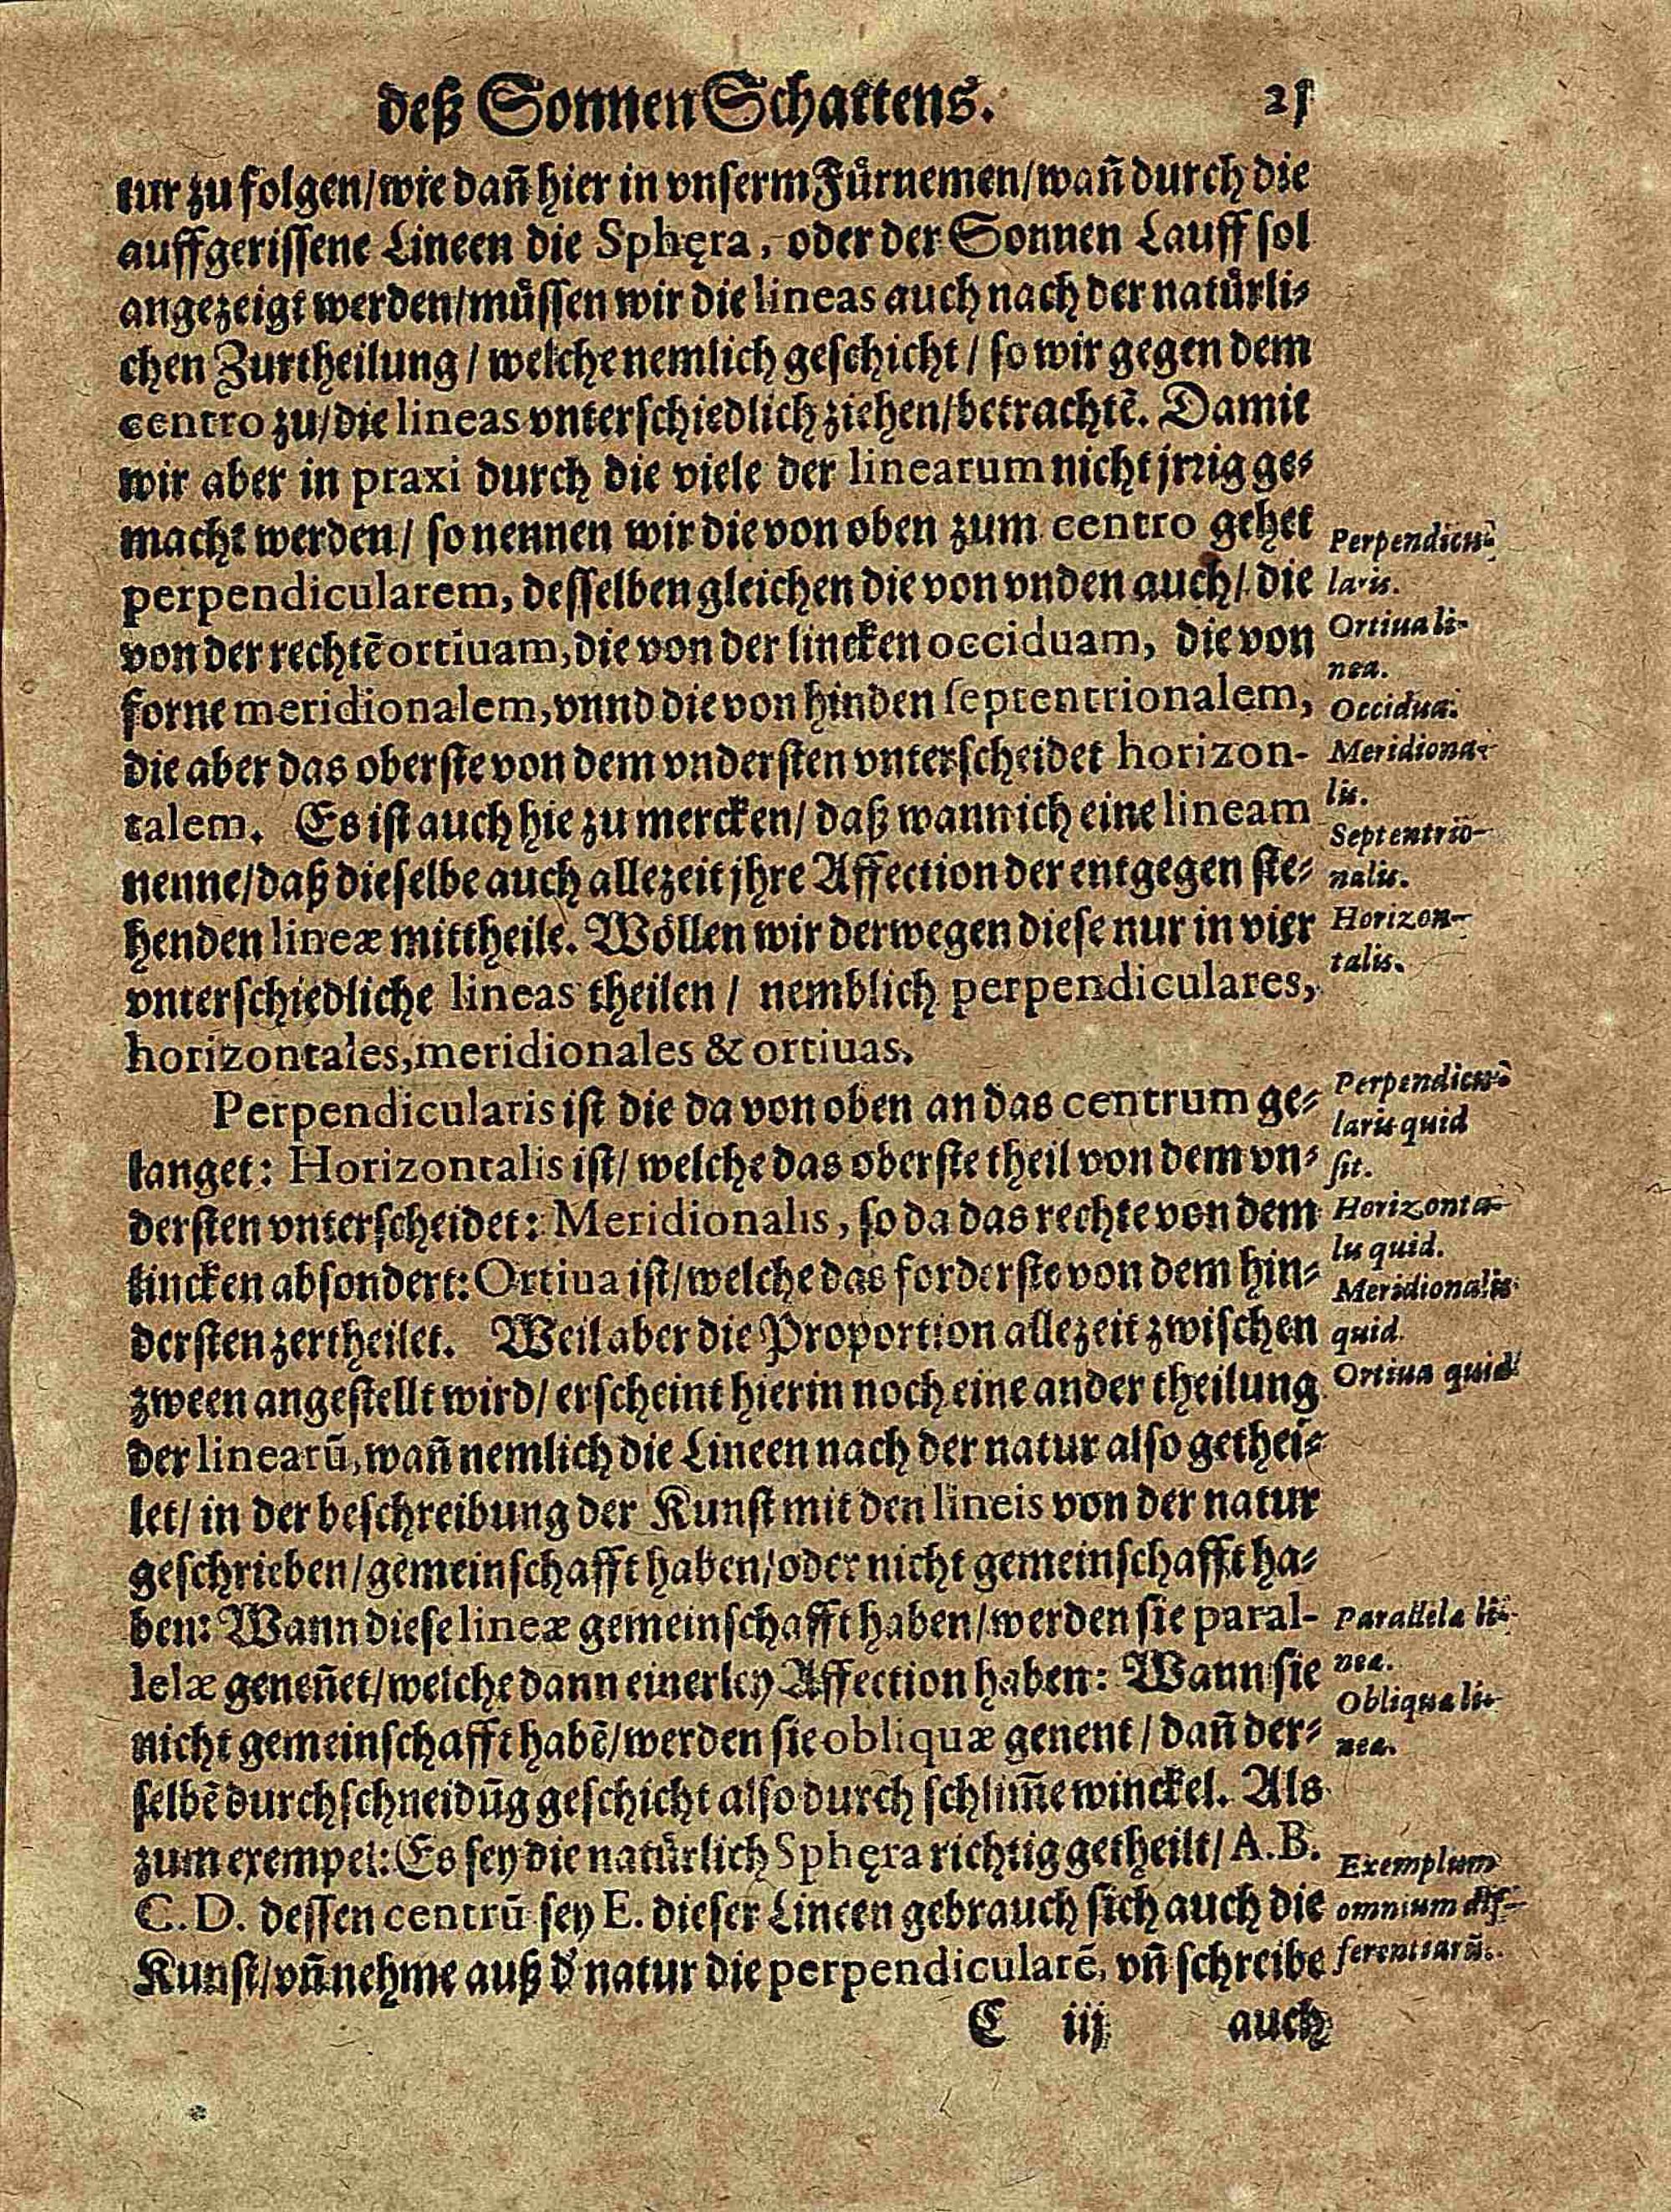 deß Sonnen Schattens. 21
tur zu folgen/wie dañ hier in vnserm Fürnemen/wañ durch die
auffgerissene Lineen die Sphęra, oder der Sonnen Lauff sol
angezeigt werden/müssen wir die lineas auch nach der natürli⸗
chen Zurtheilung / welche nemlich geschicht / so wir gegen dem
centro zu/die lineas vnterschiedlich ziehen/betrachtẽ. Damit
wir aber in praxi durch die viele der linearum nicht jrrig ge⸗
macht werden/ so nennen wir die von oben zum centro gehet
perpendicularem, desselben gleichen die von vnden auch/ die
von der rechtẽ ortiuam, die von der lincken occiduam, die von
forne meridionalem, vnnd die von hinden septentrionalem,
die aber das oberste von dem vndersten vnterscheidet horizon-
talem. Es ist auch hie zu mercken/ daß wann ich eine lineam
nenne/daß dieselbe auch allezeit jhre Affection der entgegen ste⸗
henden lineæ mittheile. Wöllen wir derwegen diese nur in vier
vnterschiedliche lineas theilen / nemblich perpendiculares,
horizontales, meridionales & ortiuas.
Perpendicu⸗
laris.
Ortiua li-
nea.
Occidua.
Meridiona-
lis.
Septentrio-
nalis.
Horizon-
talis.
Perpendicularis ist die da von oben an das centrum ge⸗
langet: Horizontalis ist/ welche das oberste theil von dem vn⸗
dersten vnterscheidet: Meridionalis, so da das rechte von dem
lincken absondert: Ortiua ist/welche das forderste von dem hin⸗
dersten zertheilet. Weil aber die Proportion allezeit zwischen
zween angestellt wird/ erscheint hierin noch eine ander theilung
der linearũ, wañ nemlich die Lineen nach der natur also gethei⸗
let/ in der beschreibung der Kunst mit den lineis von der natur
geschrieben/gemeinschafft haben/oder nicht gemeinschafft ha⸗
ben: Wann diese lineæ gemeinschafft haben/werden sie paral-
lelæ geneñet/welche dann einerley Affection haben: Wann sie
nicht gemeinschafft habẽ/werden sie obliquæ genent / dañ der⸗
selbẽ durchschneidũg geschicht also durch schlim̃e winckel. Als
zum exempel: Es sey die natürlich Sphęra richtig getheilt/ A.B.
C.D. dessen centrũ sey E. dieser Lineen gebrauch sich auch die
Kunst/vñ nehme auß d' natur die perpendicularẽ, vñ schreibe
Perpendicu-
laris quid
sit.
Horizonta-
lis quid.
Meridionalis
quid.
Ortiua quid
Parallela li-
nea.
Obliqua li-
nea.
Exemplum
omnium dif-
ferentiarũ.
C iij auch